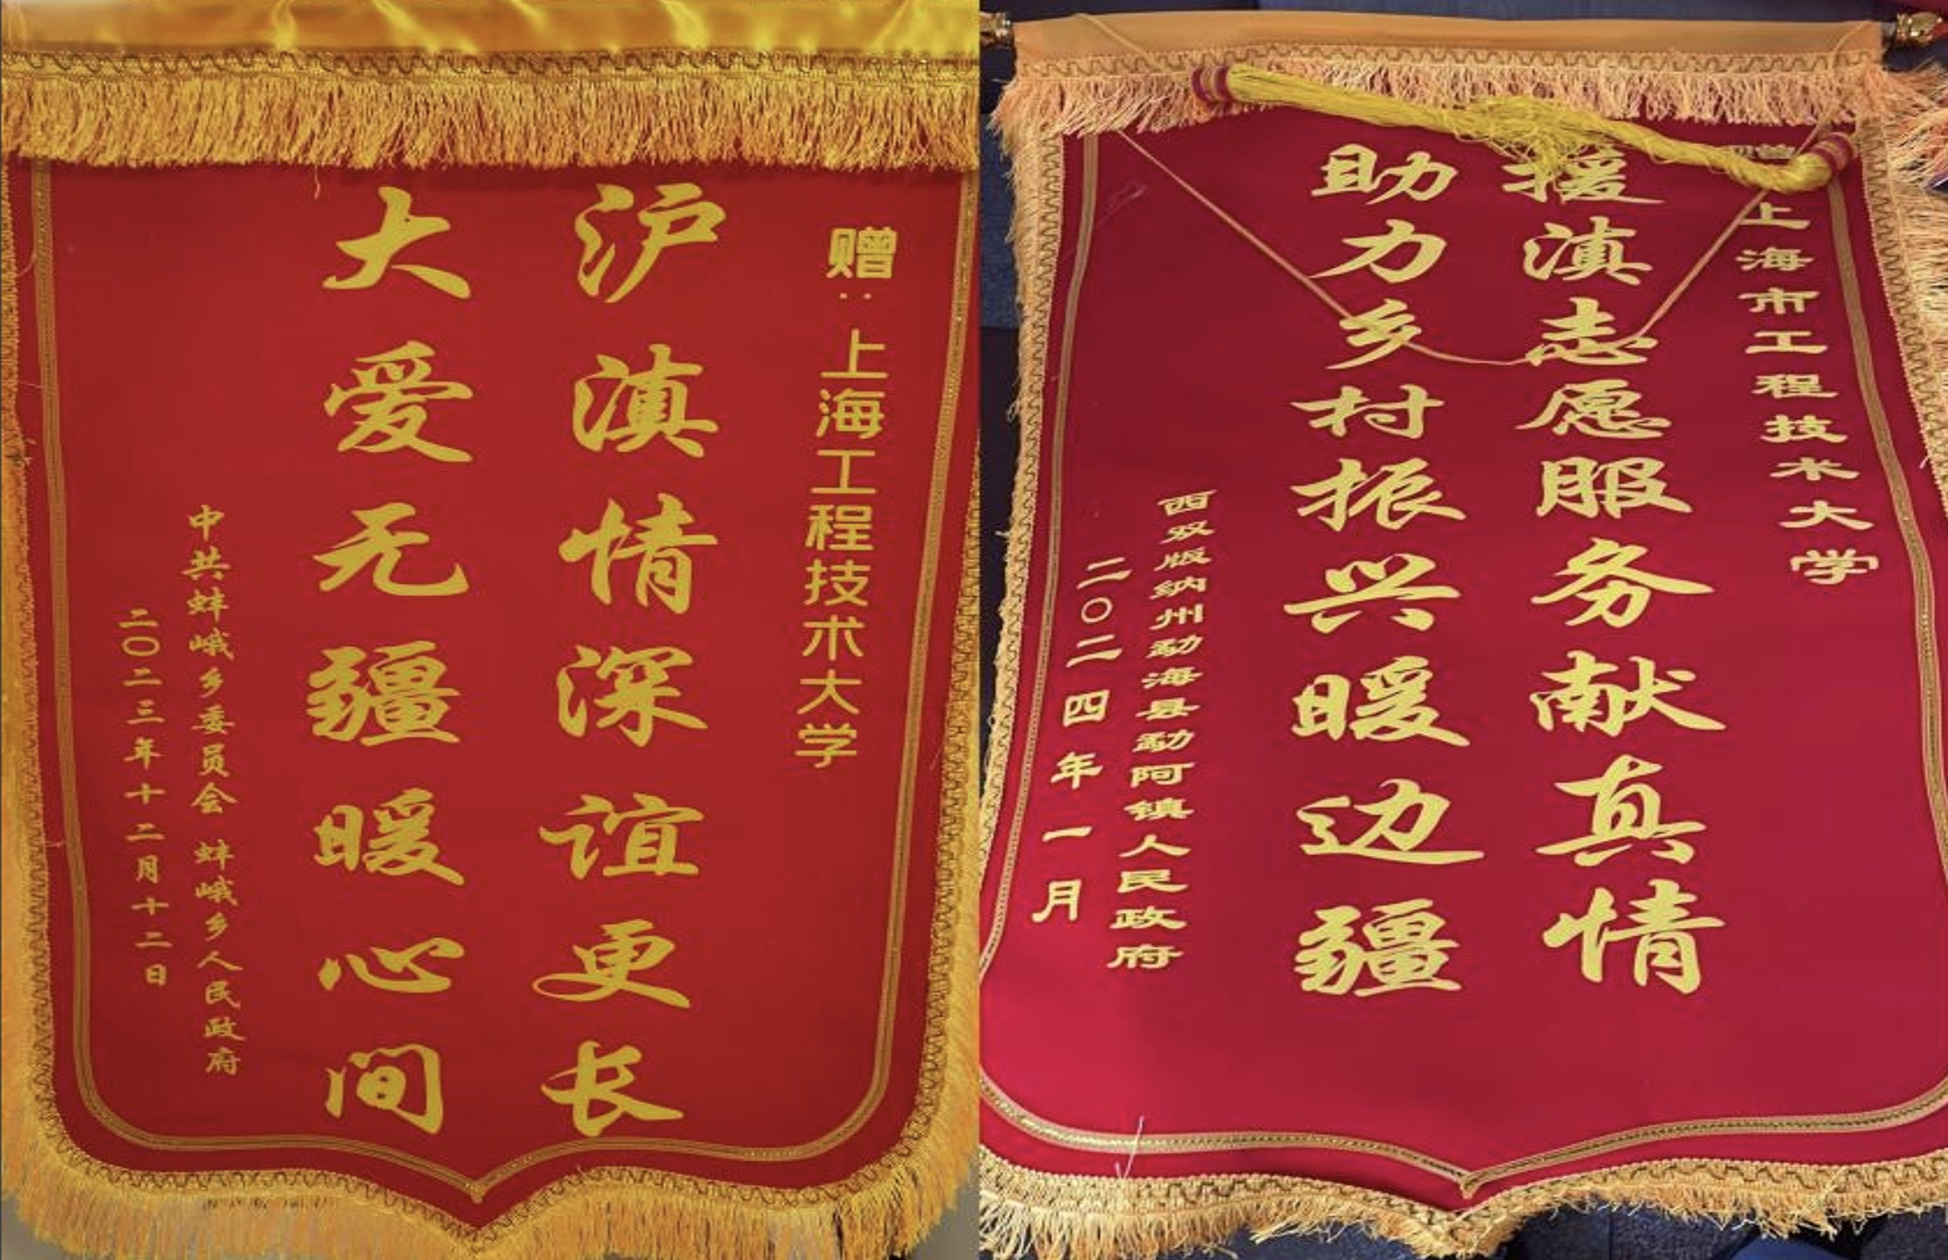 赠：上海工程技术大学
沪滇情深谊更长
大爱无疆暖心间
中共蚌峨乡委员会 蚌峨乡人民政府
二〇二三年十二月十二日
上海市工程技术大学
援滇志愿服务献真情
助力乡村振兴暖边疆
西双版纳州勐海县勐阿镇人民政府
二〇二四年一月